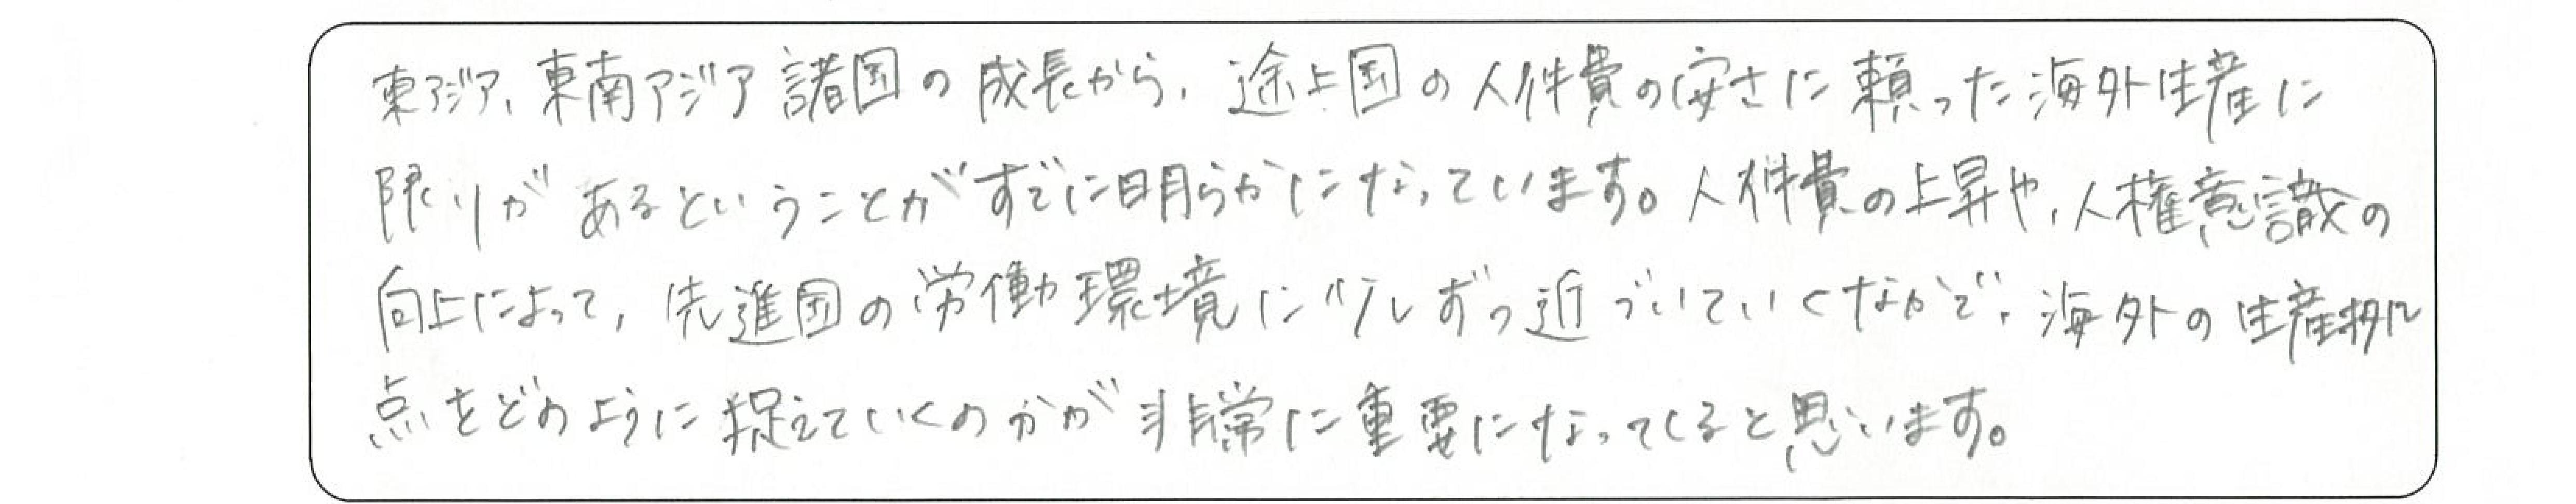 東アジア、東南アジア諸国の成長から、途上国の人件費の安さに頼った海外生産に
限りがあるということがすでに明らかになっています。人件費の上昇や、人権意識の
向上によって、先進国の労働環境に少しずつ近づいていくなかで、海外の生産拠
点をどのように捉えていくのかが非常に重要になってくると思います。